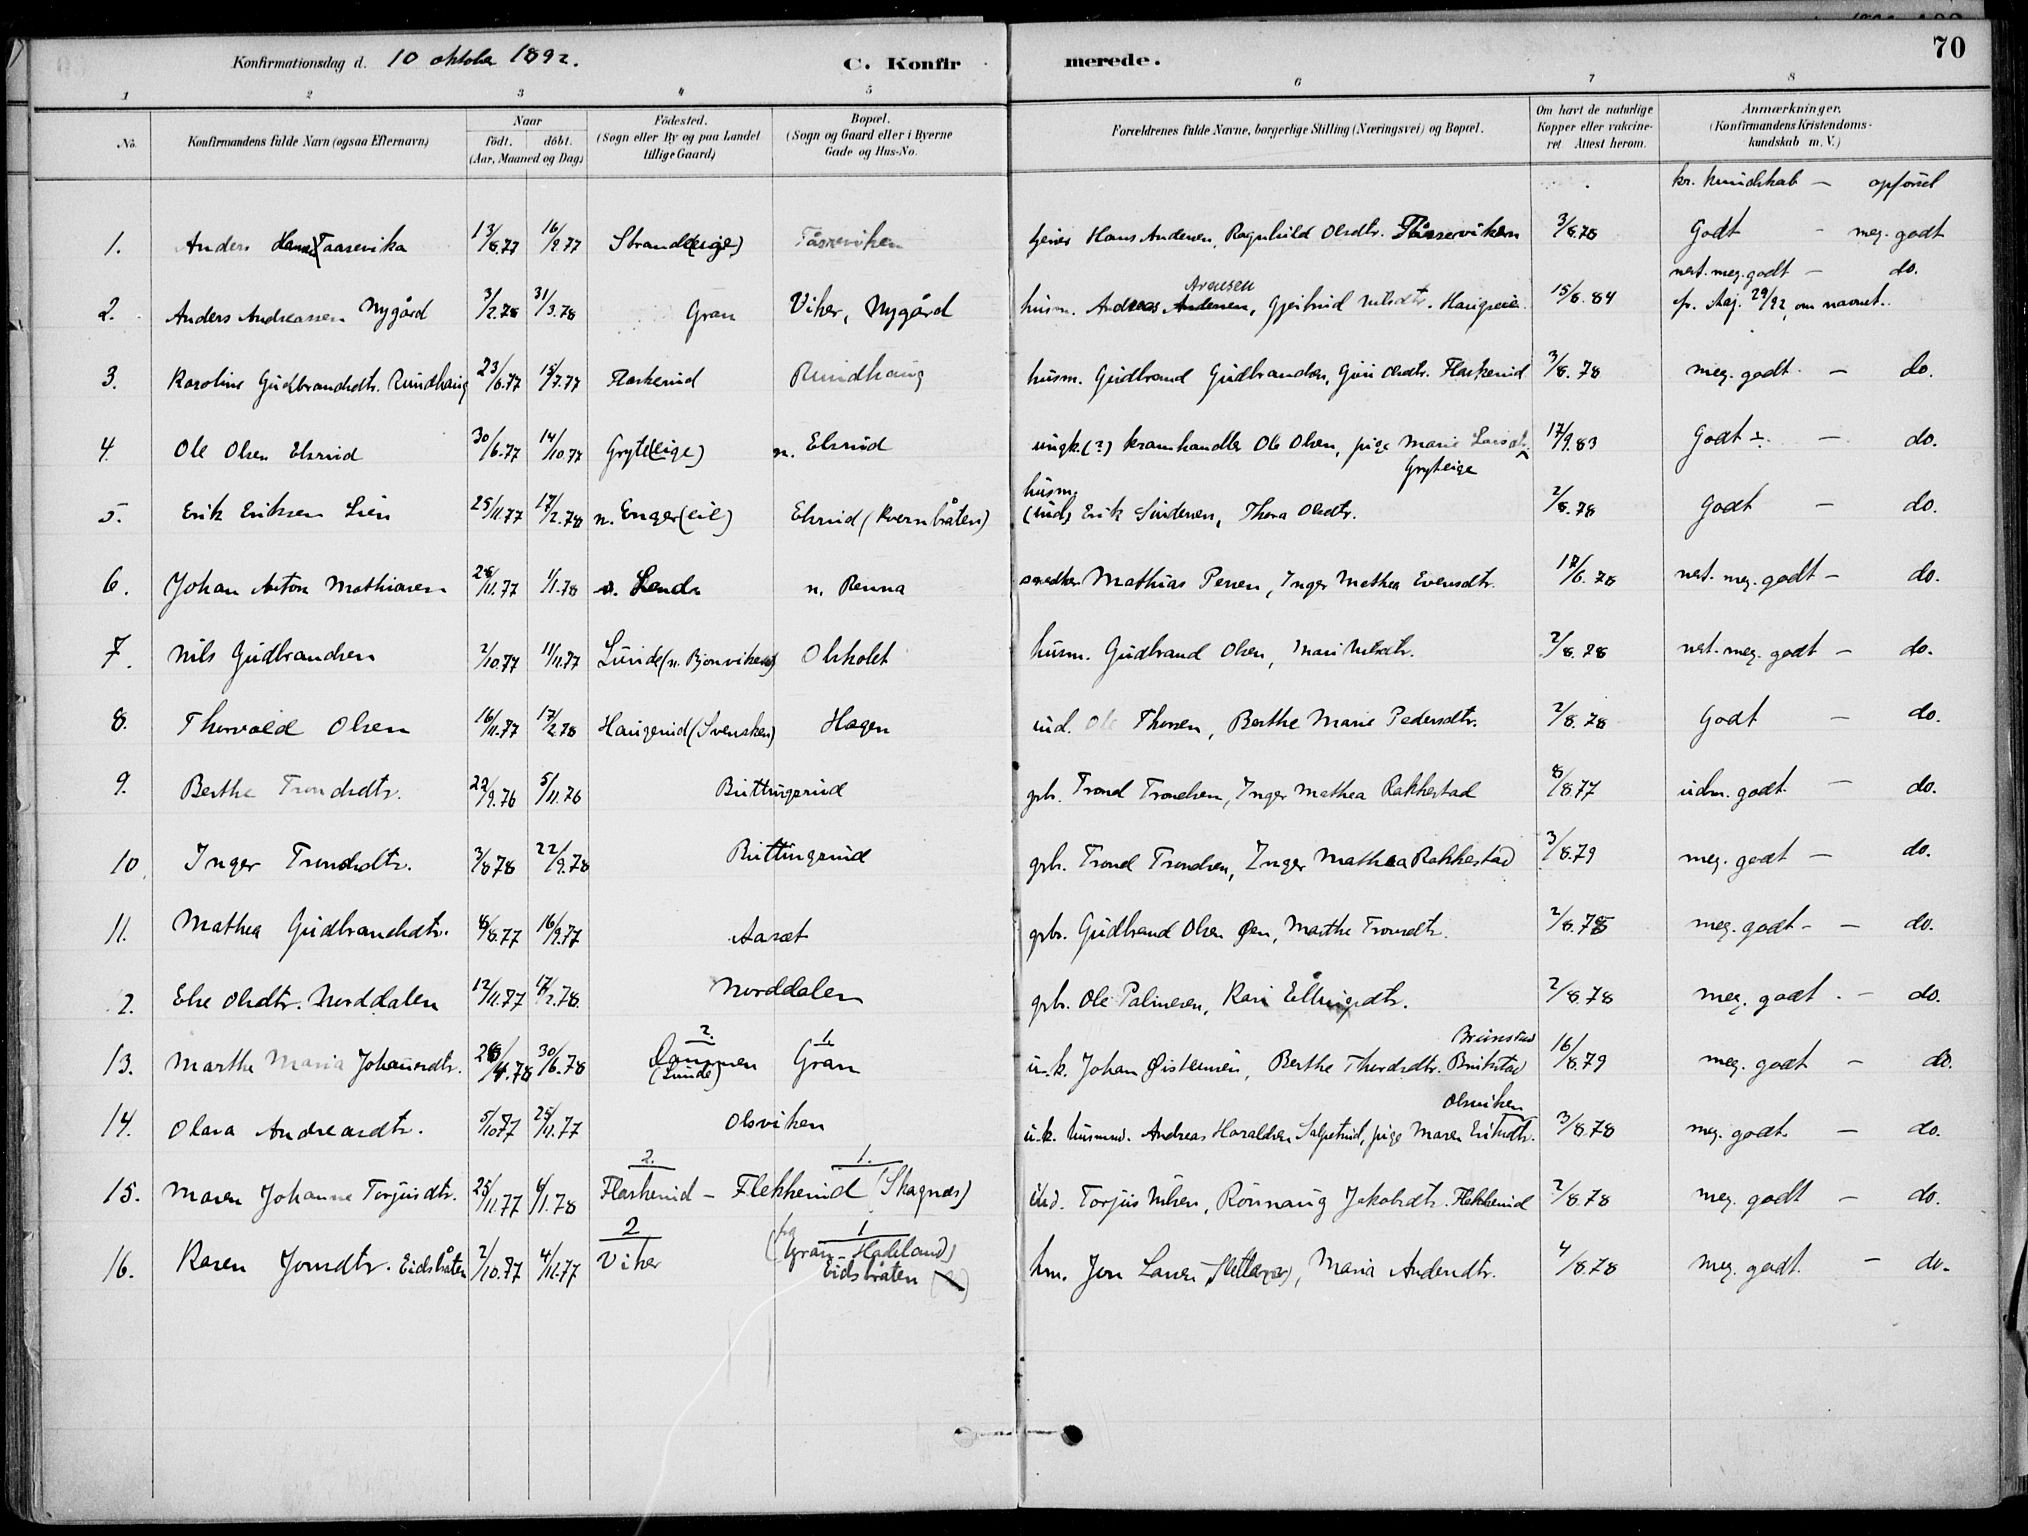 70
Konfirmationsdag d. 10 oktober 1892.
C. Konfirmerede.
1 2 3 4 5 6 7 8
No.
Konfirmandens fulde Navn (ogsaa Efternavn)
Naar
født. døbt.
(Aar, Maaned og Dag)
Fødested.
(Sogn eller By og paa Landet
tillige Gaard)
Bopæl.
(Sogn og Gaard eller i Byerne
Gade og Hus-No.
Forældrenes fulde Navne, borgerlige Stilling (Næringsvei) og Bopæl.
Om havt de naturlige
Kopper eller vakcine-
ret. Attest herom.
Anmærkninger.
(Konfirmandens Kristendoms-
kundskab m. V.)
kr. kundskab — opførsel
1. Anders Hansen Taasevika 13/8.77 16/9.77 Strande(eige) Tåsseviken Hans Andersen, Ragnhild Olsdtr. 3/8.78 Godt - meg. godt
2. Anders Andreassen Nygård 3/2.78 31/3.78 Gran Viker, Nygård husm. Andreas Andersen, Nilsdtr. Haugseie 15/8.84 nest. meg. godt — do.
29/92, om navnet.
3. Karoline Gudbrandsdtr. Rundhaug 23/6.77 15/7.77 Flaskerud Rundhaug husm. Gudbrand Gudbrandsen, Guri Olsdtr. Flaskerud 3/8.78 meg. godt — do.
4. Ole Olsen Elsrud 30/6.77 14/10.77 Gryte(eige) n. Elsrud ungk.(?) kramhandler Ole Olsen, pige Marie Larsdt. Gryteige 17/9.83 Godt ÷ — do.
5. Erik Eriksen Lien 25/11.77 17/2.78 n. Enger(eie) Elsrud (Kvernbråten) husm. (ind) Erik Sindresen, Thora Olsdtr. 2/8.78 Godt — do.
6. Johan Anton Mathiasen 28/11.77 1/1.78 n. Renna Mathias Persen, Inger Mathea Evensdtr. 17/6.78 nest. meg. godt — do.
7. Nils Gudbrandsen 2/10.77 11/11.77 Lunde(n. Bjonviken) Olsholet husm. Gudbrand Olsen, Mari Nilsdtr. 2/8.78 nest. meg. godt — do.
8. Thorvald Olsen 16/11.77 17/2.78 Haugerud(Svensken) Hagen ind. Ole Thorsen, Berthe Marie Pedersdtr. 2/8.78 Godt — do.
9. Berthe Trondsdtr. 22/9.76 5/11.76 Buttingsrud grb. Trond Trondsen, Inger Mathea Rakkestad 8/8.77 udm. godt — do.
10. Inger Trondsdtr. 3/8.78 22/9.78 Buttingsrud grb. Trond Trondsen, Inger Mathea Rakkestad 3/8.79 meg. godt — do.
11. Mathea Gudbrandsdtr. 8/8.77 16/9.77 Aaset grbr. Gudbrand Olsen Øen, Marthe Trondsdtr. 2/8.78 meg. godt — do.
12. Else Olsdtr. Norddalen 12/11.77 17/2.78 Norddalen grbr. Ole Palmesen, Kari Ellingsdtr. 2/8.78 meg. godt — do.
13. Marthe Maria Johannsdtr. 28/4.78 30/6.78 2. (Lunde) 1. Gran u.k. Johan Østensen, Berthe Thordsdtr. 16/8.79 meg. godt — do.
14. Olava Andreasdtr. 5/10.77 25/11.77 Olsviken u.k. husmd. Andreas Haraldsen, pige Maren Eriksdtr. Olsviken 3/8.78 meg. godt — do.
15. Maren Johanne Torjusdtr. 25/11.77 6/1.78 2. Flaskerud — 1. Flekkerud (Skagnæs) ind. Torjus Nilsen, Rønnaug Jakobsdtr. Flekkerud 2/8.78 meg. godt — do.
16. Karen Jonsdtr. Eidsbråten 2/10.77 4/11.77 2 Viker 1 (fra Gran Hadeland) Eidsbråten hm. Jon Larsen, Maria Andersdtr. 4/8.78 meg. godt — do.